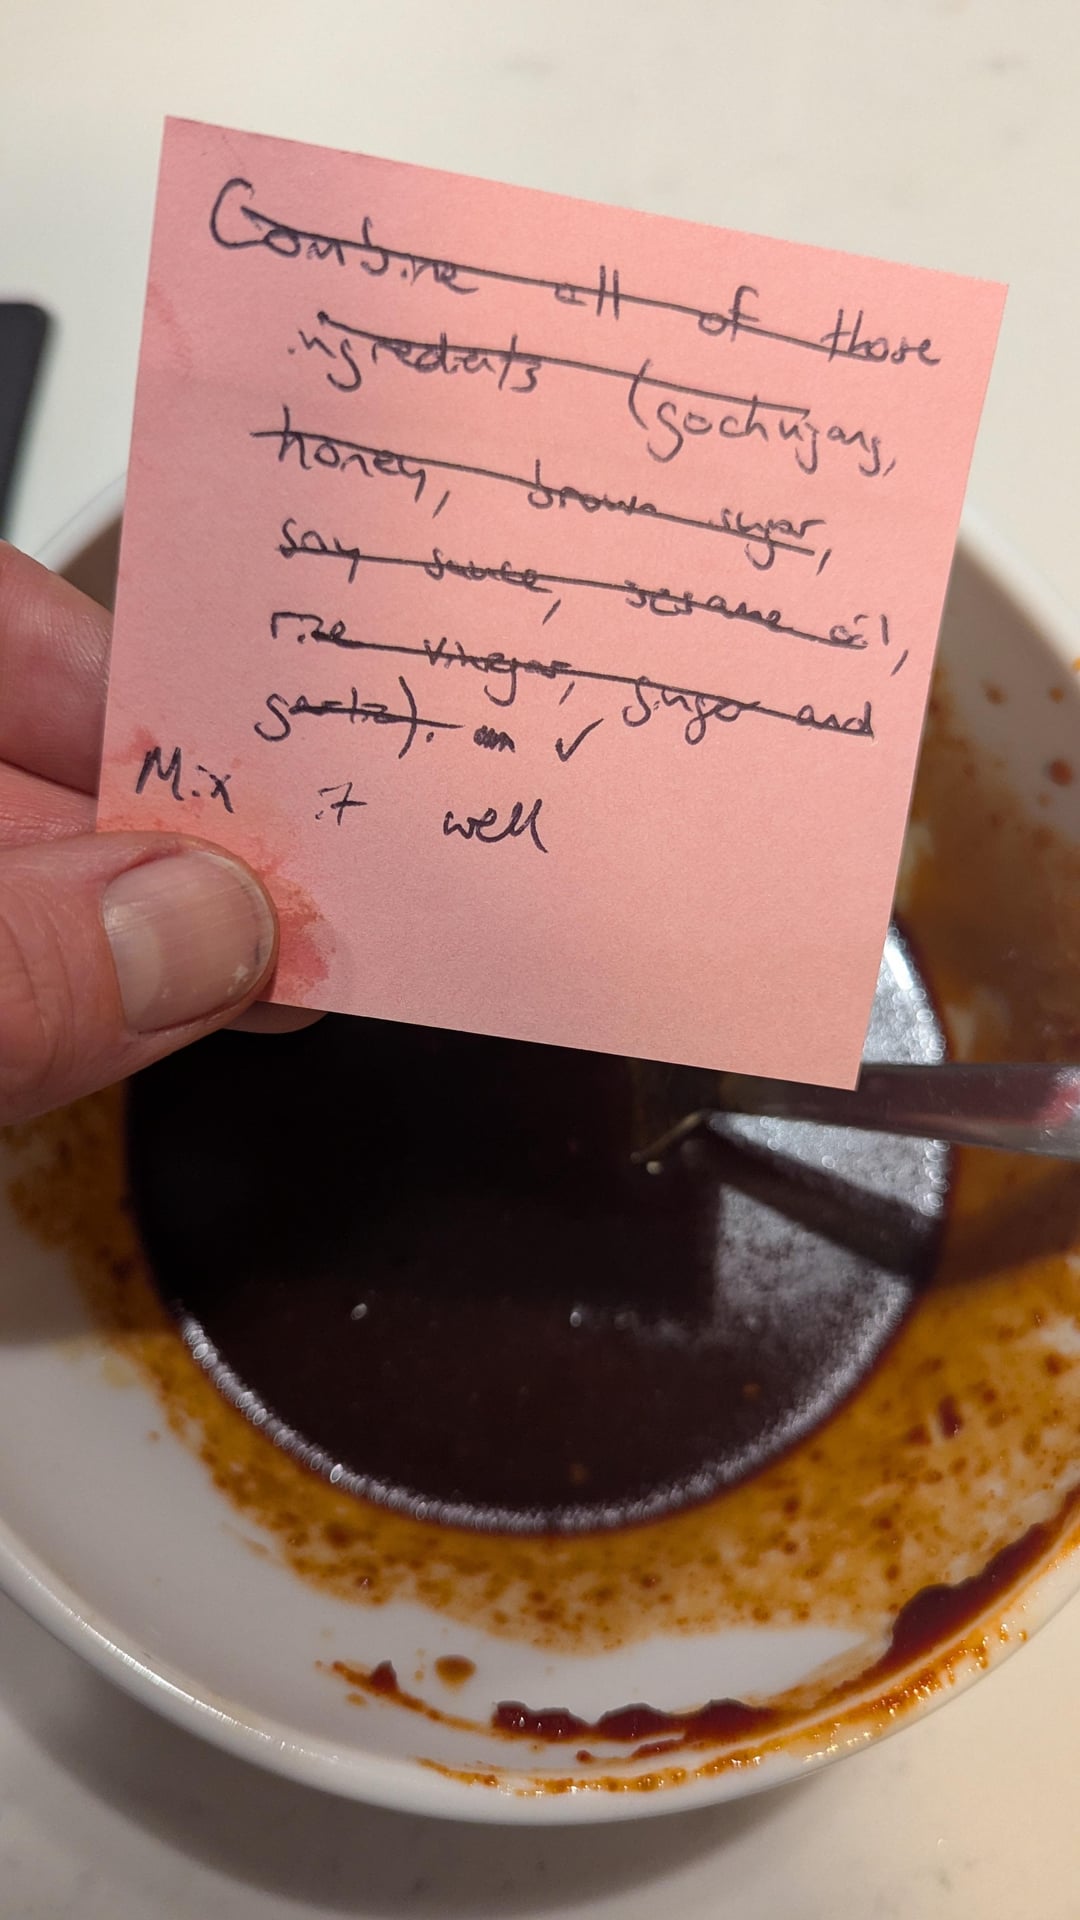 Combine all of those
ingredients (gochujang,
honey, brown sugar,
soy sauce, sesame oil,
rice vinegar, ginger and
garlic). ✓
Mix it well